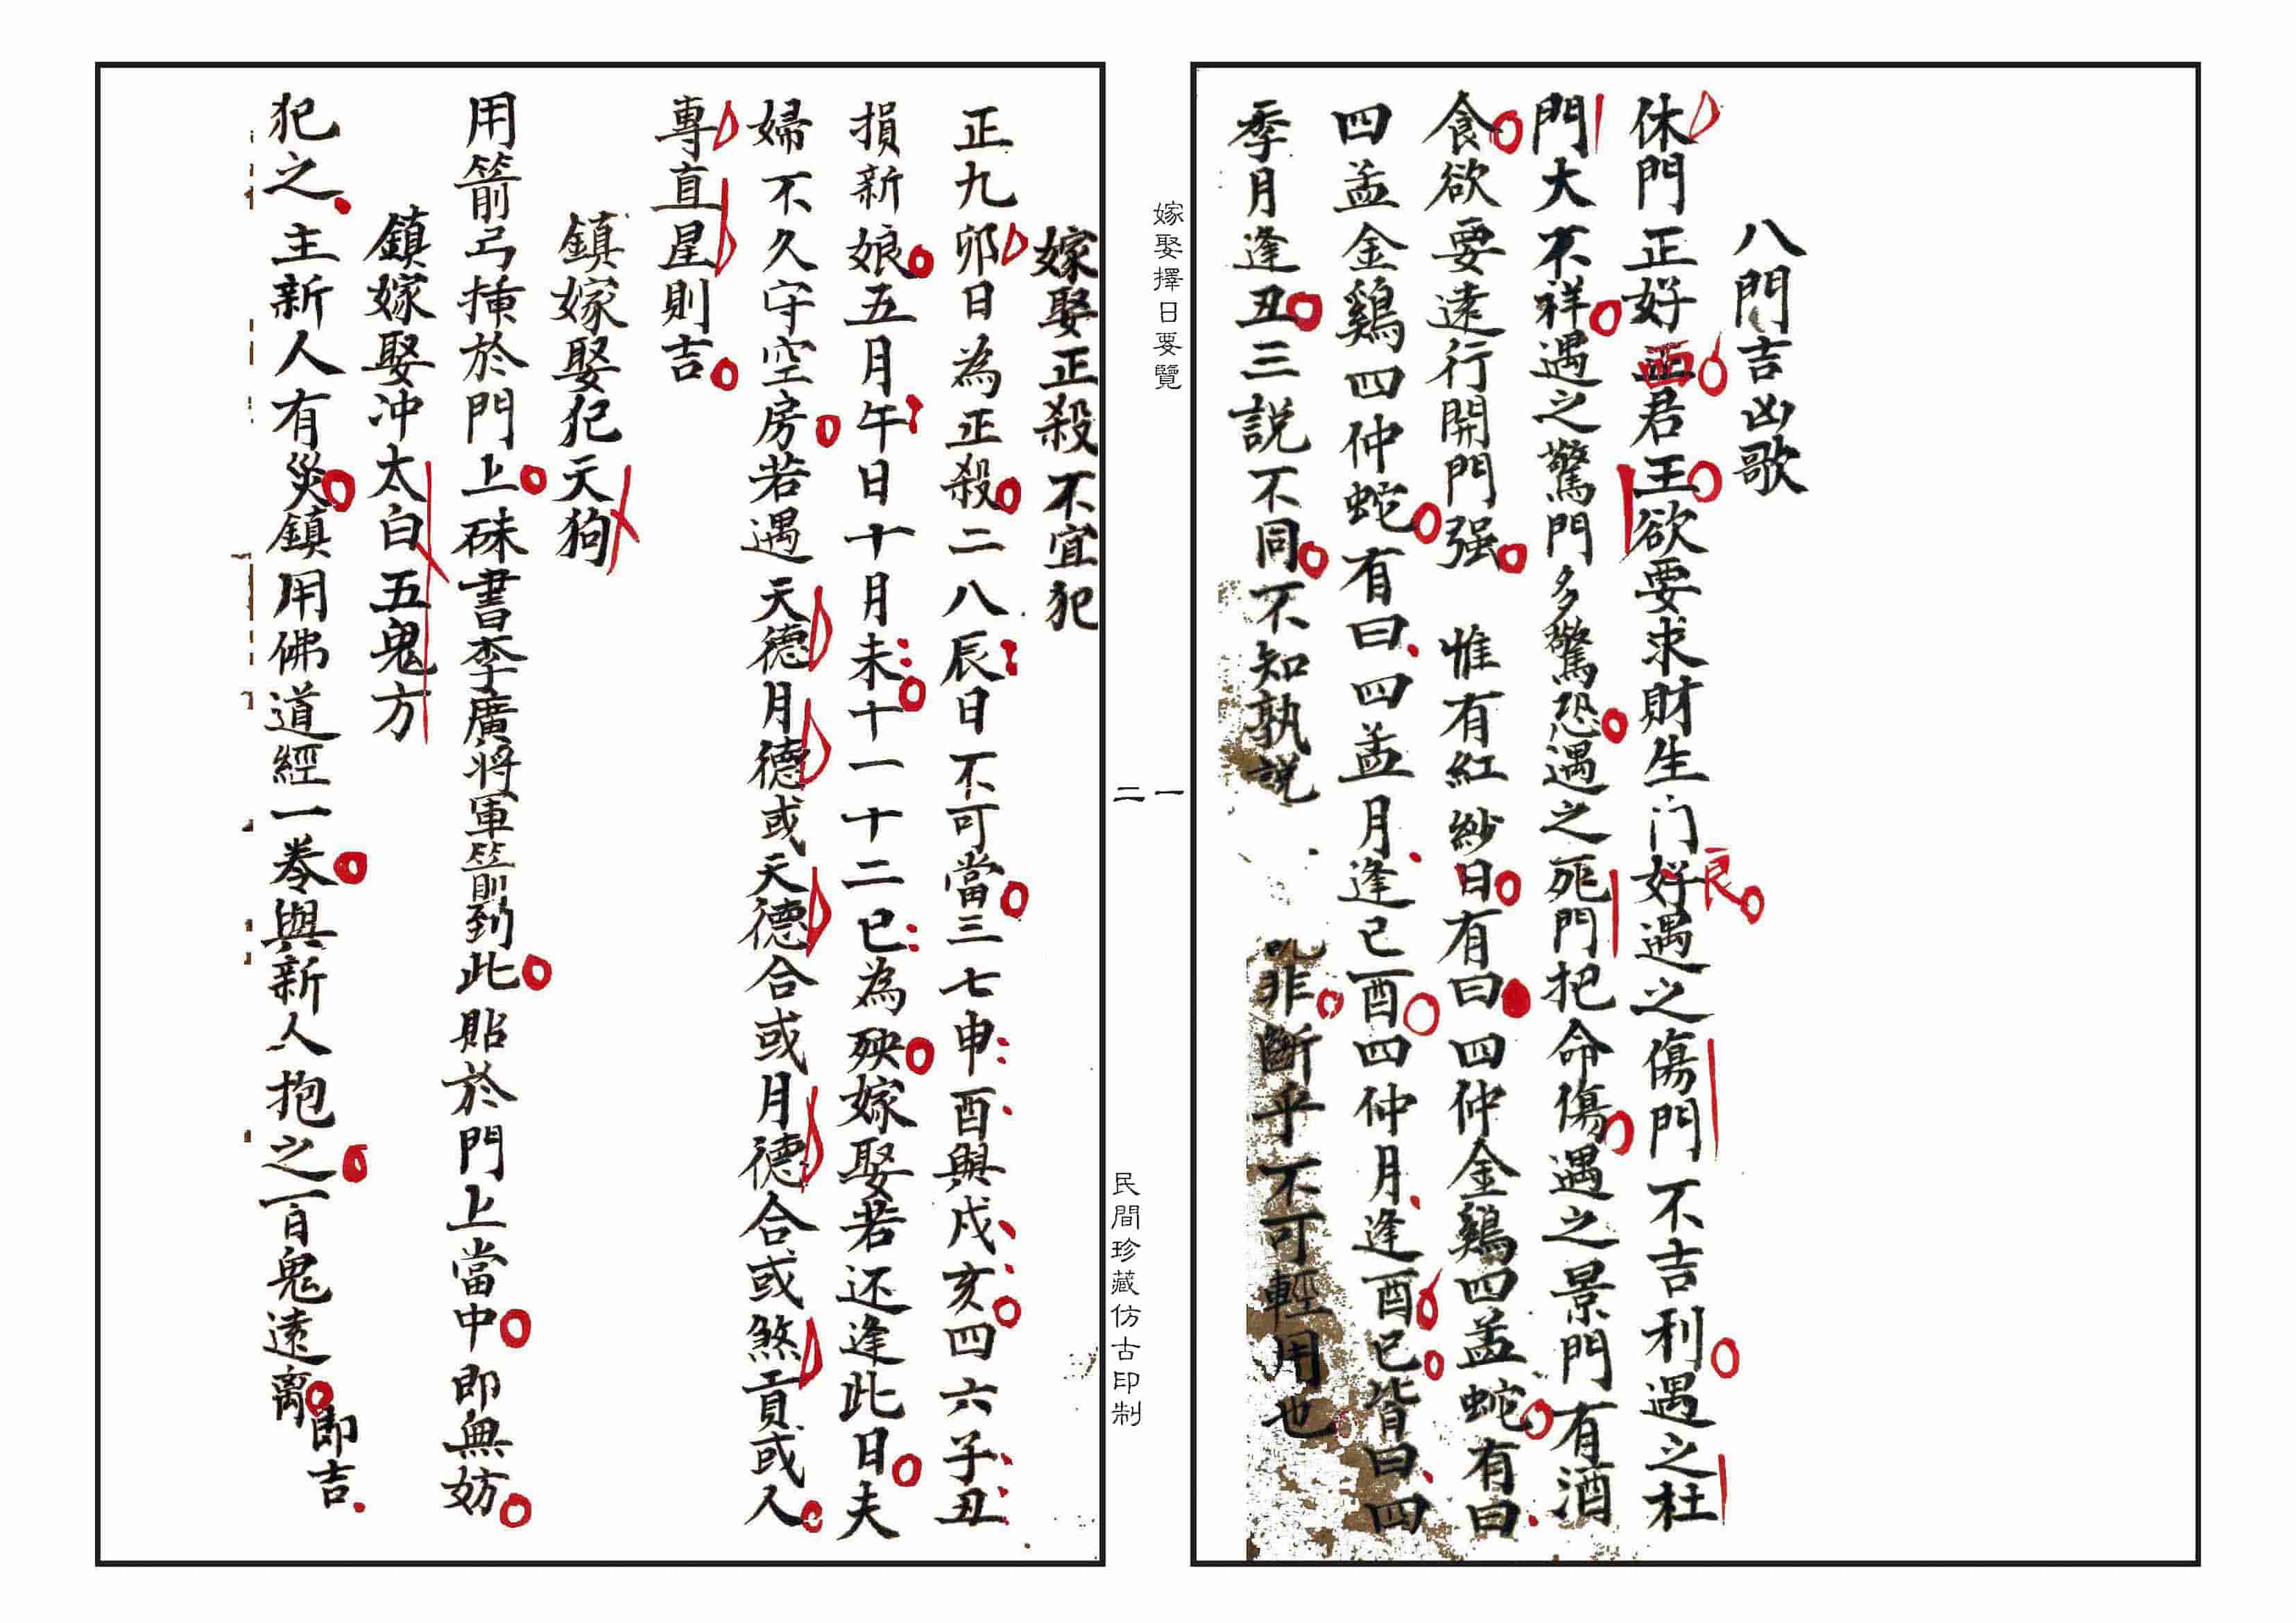 八門吉凶歌
休門正好西君王欲要求財生门好良遇之傷門不吉利遇之杜
門大不祥遇之驚門多驚恐遇之死門把命傷遇之景門有酒
食欲要遠行開門强 惟有紅紗日有曰四仲金鷄四孟蛇有曰
四孟金鷄四仲蛇有曰四孟月逢已酉四仲月逢酉已皆曰四
季月逢丑三說不同不知孰説 非斷乎不可輕用也
嫁娶擇日要覽
一
二
民間珍藏仿古印制
嫁娶正殺不宜犯
正九卯日為正殺二八辰日不可當三七申酉與戌亥四六子丑
損新娘五月午日十月未十一十二已為殃嫁娶若还逢此日夫
婦不久守空房若遇天德月德或天德合或月德合或煞貢或人
專直星則吉
鎮嫁娶犯天狗
用箭弓掛於門上硃書李廣將軍箭到此貼於門上當中即無妨
鎮嫁娶冲太白五鬼方
犯之主新人有災鎮用佛道經一卷與新人抱之百鬼遠离即吉